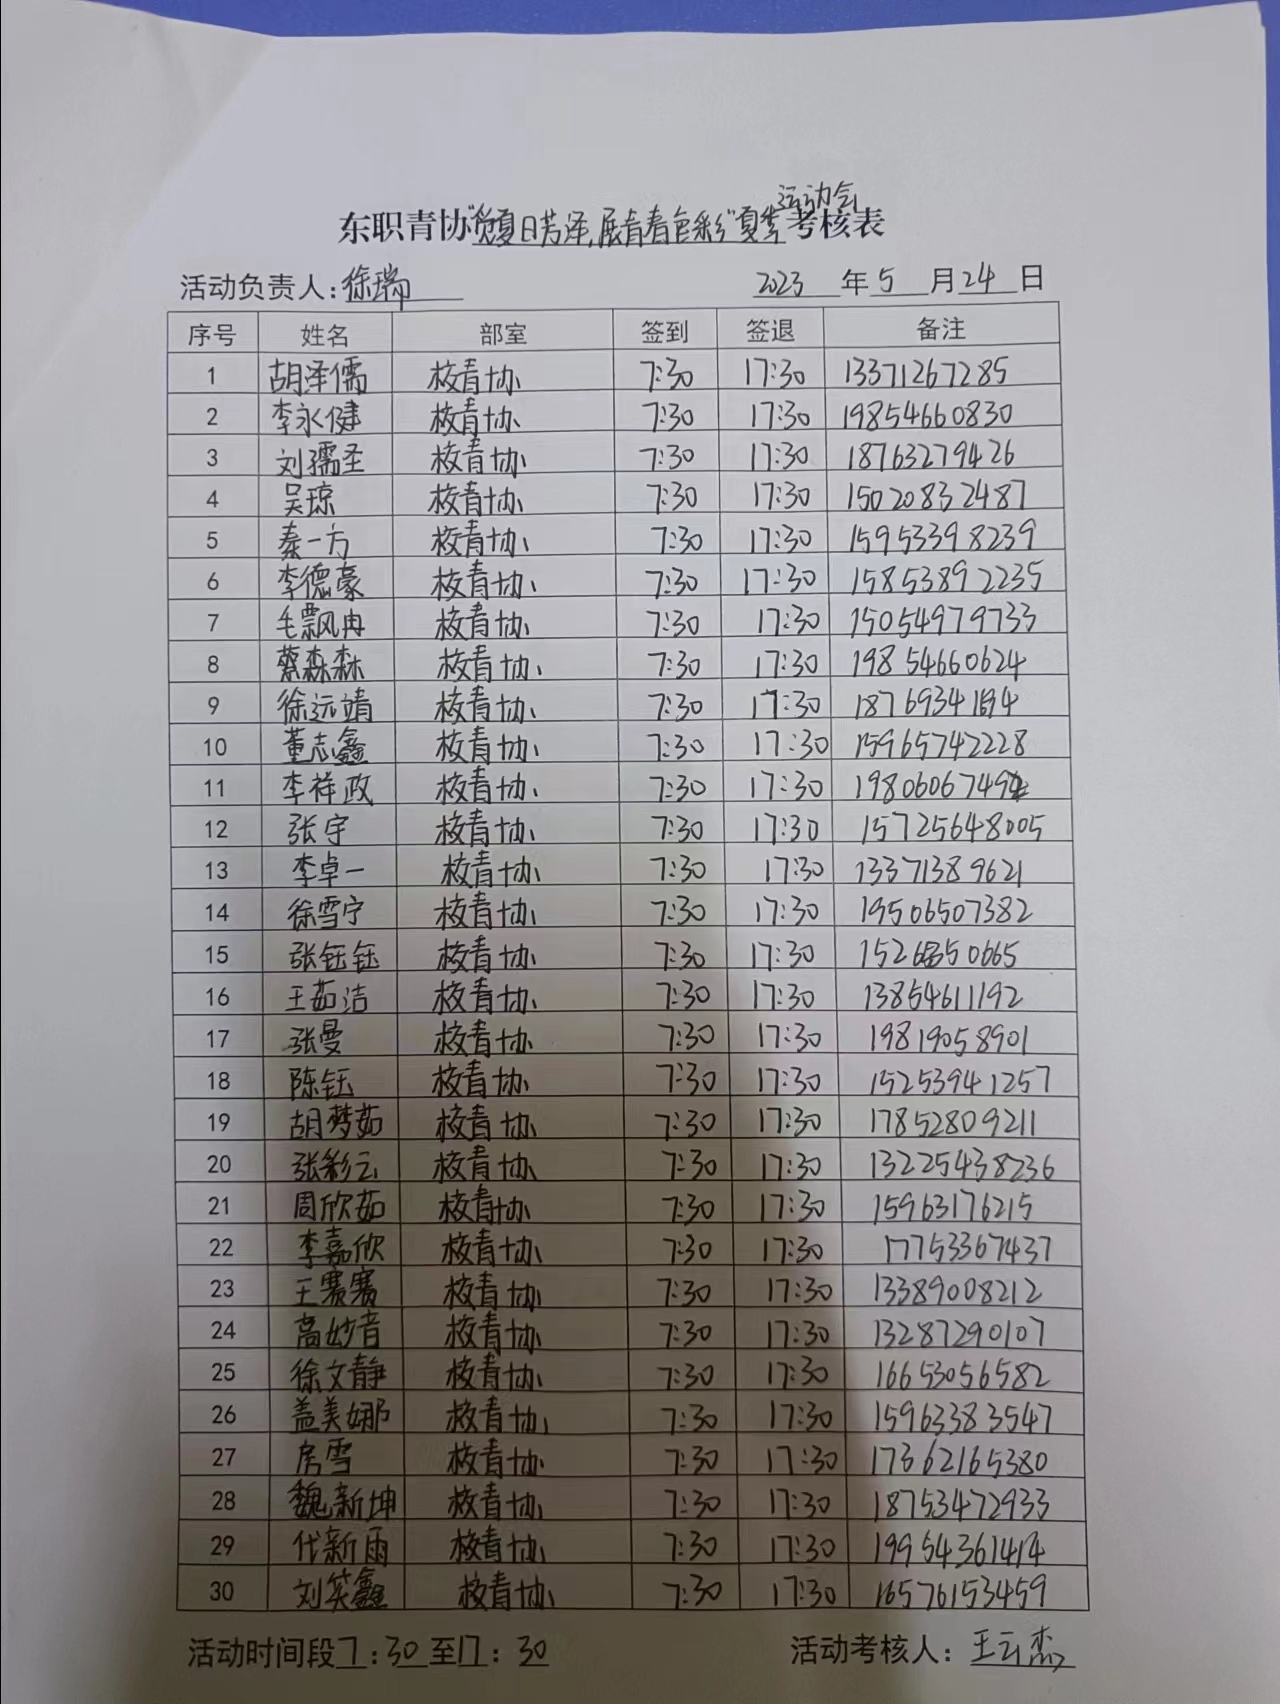 运动会
东职青协"觅夏日芳泽,展青春色彩"夏季考核表
活动负责人:徐瑞 2023 年 5 月 24 日
序号 姓名 部室 签到 签退 备注
1 胡泽儒 校青协 7:30 17:30 13371267285
2 李永健 校青协 7:30 17:30 19854660830
3 刘孺圣 校青协 7:30 17:30 18763279426
4 吴琼 校青协 7:30 17:30 15020832487
5 秦一方 校青协 7:30 17:30 15953398239
6 李德豪 校青协 7:30 17:30 15853892235
7 毛飘冉 校青协 7:30 17:30 15054979733
8 蔡森森 校青协 7:30 17:30 19854660624
9 徐远靖 校青协 7:30 17:30
10 董志鑫 校青协 7:30 17:30 15965742228
11 李祥政 校青协 7:30 17:30
12 张宇 校青协 7:30 17:30 15725648005
13 李卓一 校青协 7:30 17:30 13371389621
14 徐雪宁 校青协 7:30 17:30 19506507382
15 张钰钰 校青协 7:30 17:30
16 王茹洁 校青协 7:30 17:30 13854611192
17 张曼 校青协 7:30 17:30 19819058901
18 陈钰 校青协 7:30 17:30 15253941257
19 胡梦茹 校青协 7:30 17:30 17852809211
20 张彩云 校青协 7:30 17:30 13225438236
21 周欣茹 校青协 7:30 17:30 15963176215
22 李嘉欣 校青协 7:30 17:30 17753367437
23 王赛赛 校青协 7:30 17:30 13389008212
24 高妙音 校青协 7:30 17:30 13287290107
25 徐文静 校青协 7:30 17:30 16653056582
26 盖美娜 校青协 7:30 17:30 15963383547
27 房雪 校青协 7:30 17:30 17362165380
28 魏新坤 校青协 7:30 17:30 18753472933
29 代新雨 校青协 7:30 17:30 19954361414
30 刘笑鑫 校青协 7:30 17:30 16576153459
活动时间段7:30至17:30 活动考核人:王云杰